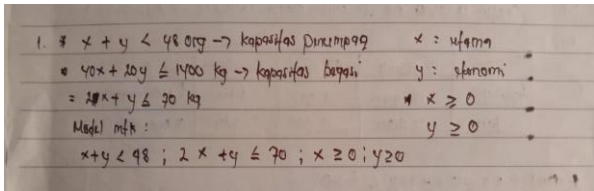 1. * x + y < 48 org → kapasitas penumpang x = utama
• 40x + 20y ≤ 1400 kg → kapasitas bagasi y : ekonomi
= 2x + y ≤ 70 kg * x ≥ 0
Model mtk : y ≥ 0
x+y < 48 ; 2x + y ≤ 70 ; x ≥ 0 ; y ≥ 0